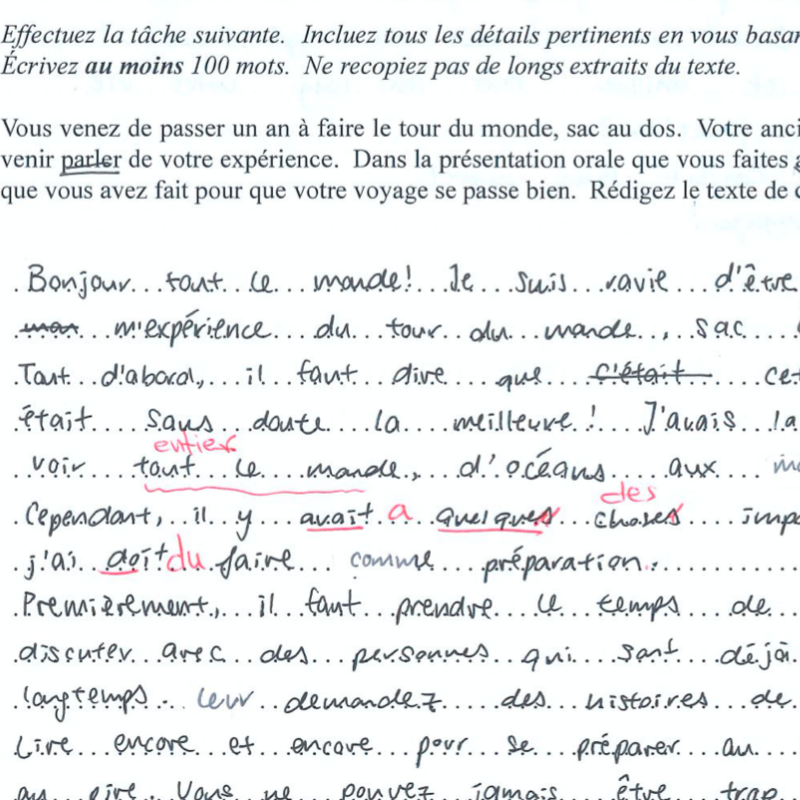 Effectuez la tâche suivante. Incluez tous les détails pertinents en vous basan
Écrivez au moins 100 mots. Ne recopiez pas de longs extraits du texte.
Vous venez de passer un an à faire le tour du monde, sac au dos. Votre anci
venir parler de votre expérience. Dans la présentation orale que vous faites
que vous avez fait pour que votre voyage se passe bien. Rédigez le texte de
Bonjour tout le monde! Je suis ravie d'être
mon m'expérience du tour du monde, sac
Tout d'abord, il faut dire que c'était cet
était sans doute la meilleure! J'avais la
entier
voir tout le monde, d'océans aux
des
Cependant, il y avait a quelques choses impo
j'ai doit du faire comme préparation.
Premièrement, il faut prendre le temps de
discuter avec des personnes qui sont déjà
longtemps. leur demandez des histoires de
Lire encore et encore pour se préparer au
au pire. Vous ne pouvez jamais être trop